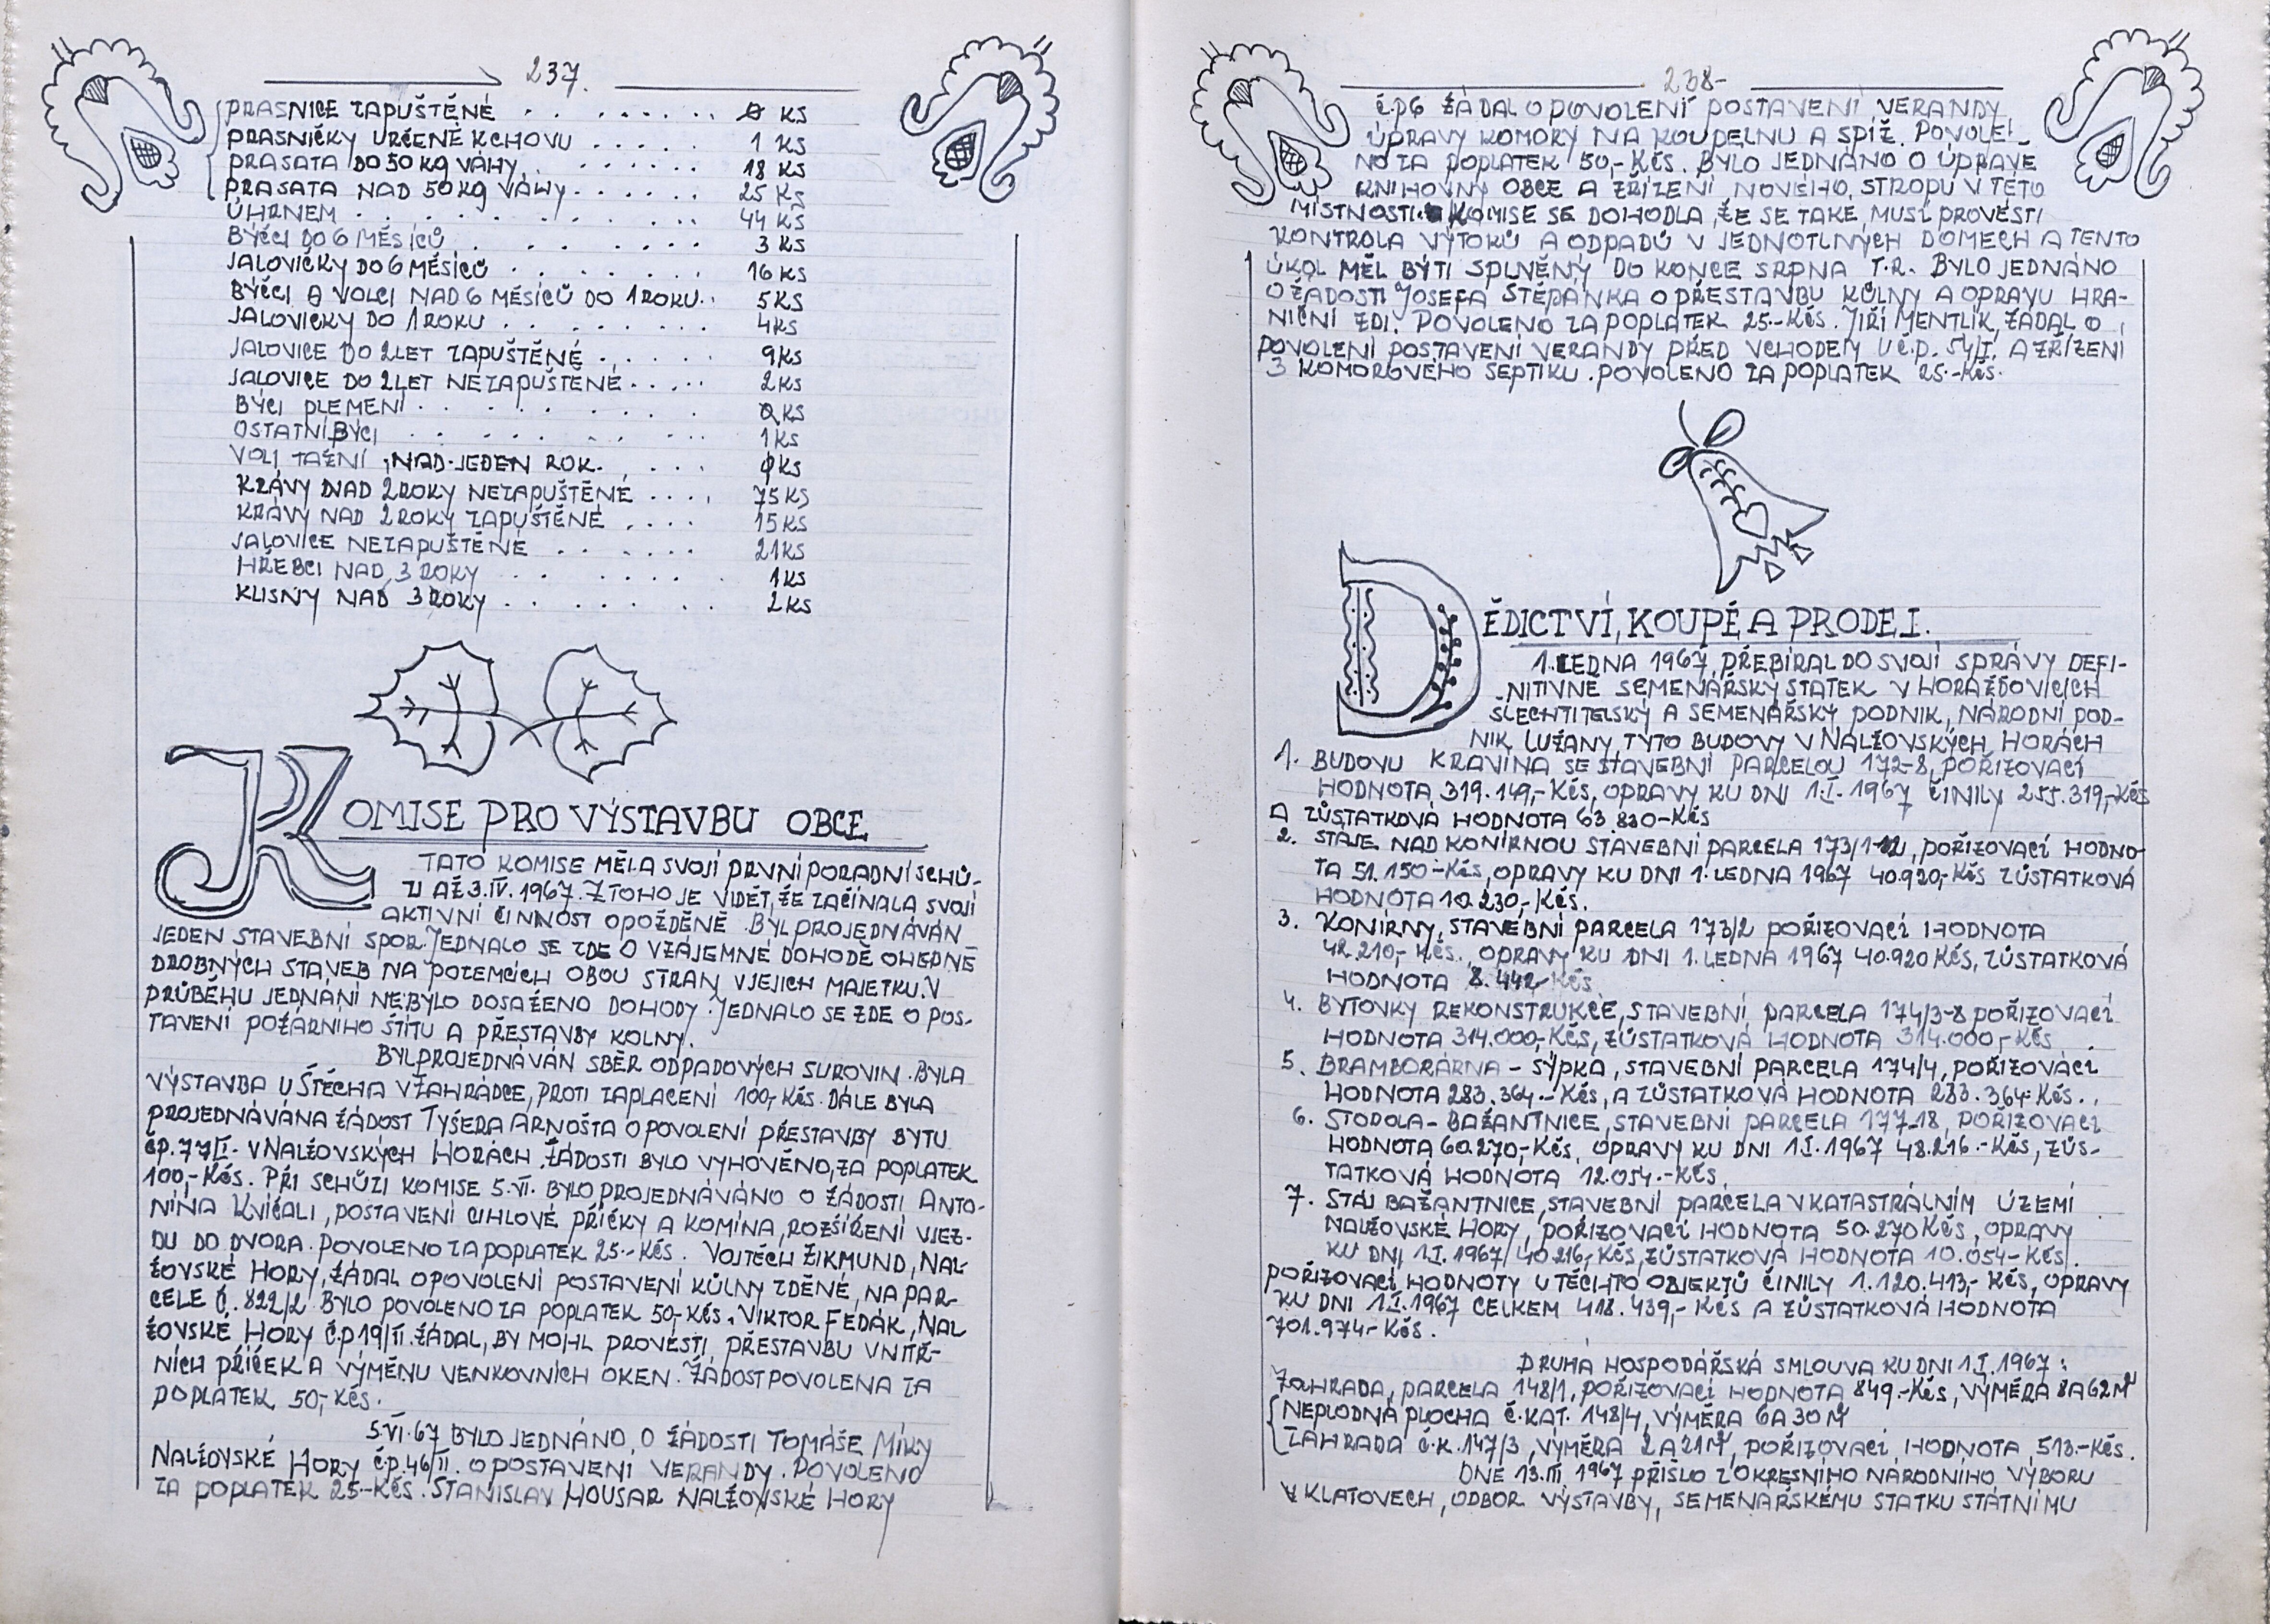 237.
PRASNICE ZAPUŠTĚNÉ . . . . . . . . 0 KS
PRASNIČKY URČENÉ K CHOVU . . . . . 1 KS
PRASATA DO 50 KG VÁHY. . . . . . . 18 KS
PRASATA NAD 50 KG VÁHY . . . . . . 25 KS
ÚHRNEM . . . . . . . . . . 44 KS
BÝČCI DO 6 MĚSÍCŮ . . . . . . . 3 KS
JALOVIČKY DO 6 MĚSÍCŮ . . . . . . 16 KS
BÝČCI A VOLCI NAD 6 MĚSÍCŮ DO 1 ROKU . . 5 KS
JALOVIČKY DO 1 ROKU . . . . . . . . 4 KS
JALOVICE DO 2 LET ZAPUŠTĚNÉ . . . . . 9 KS
JALOVICE DO 2 LET NEZAPUŠTĚNÉ . . . . . 2 KS
BÝCI PLEMENÍ . . . . . . . . . 0 KS
OSTATNÍ BÝCI . . . . . . . . 1 KS
VOLI TAŽNÍ, NAD JEDEN ROK . . . . 0 KS
KRÁVY NAD 2 ROKY NEZAPUŠTĚNÉ . . . . 75 KS
KRÁVY NAD 2 ROKY ZAPUŠTĚNÉ . . . . 15 KS
JALOVICE NEZAPUŠTĚNÉ . . . . . . 21 KS
HŘEBCI NAD 3 ROKY . . . . . . . 1 KS
KLISNY NAD 3 ROKY . . . . . . . 2 KS
KOMISE PRO VÝSTAVBU OBCE
TATO KOMISE MĚLA SVOJÍ PRVNÍ PORADNÍ SCHŮ-
ZI AŽ 3. IV. 1967. Z TOHO JE VIDĚT, ŽE ZAČÍNALA SVOJÍ
AKTIVNÍ ČINNOST OPOŽDĚNĚ. BYL PROJEDNÁVÁN
JEDEN STAVEBNÍ SPOR. JEDNALO SE ZDE O VZÁJEMNÉ DOHODĚ OHEDNĚ
DROBNÝCH STAVEB NA POZEMCÍCH OBOU STRAN V JEJICH MAJETKU. V
PRŮBĚHU JEDNÁNÍ NEBYLO DOSAŽENO DOHODY. JEDNALO SE ZDE O POS-
TAVENÍ POŽÁRNÍHO ŠTÍTU A PŘESTAVBY KOLNY.
BYL PROJEDNÁVÁN SBĚR ODPADOVÝCH SUROVIN. BYLA
VÝSTAVBA U ŠTĚCHA V ZAHRÁDCE, PROTI ZAPLACENÍ 100,- KČS. DÁLE BYLA
PROJEDNÁVÁNA ŽÁDOST TYŠERA ARNOŠTA O POVOLENÍ PŘESTAVBY BYTU
ČP. 77/I. V NALŽOVSKÝCH HORÁCH. ŽÁDOSTI BYLO VYHOVĚNO, ZA POPLATEK
100,- KČS. PŘI SCHŮZI KOMISE 5. VI. BYLO PROJEDNÁVÁNO O ŽÁDOSTI ANTO-
NÍNA KVÍČALI, POSTAVENÍ CIHLOVÉ PŘÍČKY A KOMÍNA, ROZŠÍŘENÍ VJEZ-
DU DO DVORA. POVOLENO ZA POPLATEK 25.- KČS. VOJTĚCH ZIKMUND, NAL-
ŽOVSKÉ HORY, ŽÁDAL O POVOLENÍ POSTAVENÍ KŮLNY ZDĚNÉ, NA PAR-
CELE Č. 822/2 BYLO POVOLENO ZA POPLATEK 50,- KČS. VIKTOR FEDÁK, NAL
ŽOVSKÉ HORY Č.P 19/II. ŽÁDAL, BY MOHL PROVÉSTI PŘESTAVBU VNITŘ-
NÍCH PŘÍČEK A VÝMĚNU VENKOVNÍCH OKEN. ŽÁDOST POVOLENA ZA
POPLATEK 50,- KČS.
5. VI. 67 BYLO JEDNÁNO O ŽÁDOSTI TOMÁŠE MÍKY
NALŽOVSKÉ HORY Č.P. 46/II. O POSTAVENÍ VERANDY. POVOLENO
ZA POPLATEK 25.- KČS. STANISLAV HOUSAR NALŽOVSKÉ HORY
238-
Č.P 6 ŽÁDAL O POVOLENÍ POSTAVENÍ VERANDY,
ÚPRAVY KOMORY NA KOUPELNU A SPÍŽ. POVOLE-
NO ZA POPLATEK 50,- KČS. BYLO JEDNÁNO O ÚPRAVĚ
KNIHOVNY OBCE A ZŘÍZENÍ NOVÉHO STROPU V TÉTO
MÍSTNOSTI. KOMISE SE DOHODLA, ŽE SE TAKÉ MUSÍ PROVÉSTI
KONTROLA VÝTOKŮ A ODPADŮ V JEDNOTLIVÝCH DOMECH A TENTO
ÚKOL MĚL BÝTI SPLNĚNÝ DO KONCE SRPNA T.R. BYLO JEDNÁNO
O ŽÁDOSTI JOSEFA ŠTĚPÁNKA O PŘESTAVBU KŮLNY A OPRAVU HRA-
NIČNÍ ZDI. POVOLENO ZA POPLATEK 25.- KČS. JIŘÍ MENTLÍK, ŽÁDAL O
POVOLENÍ POSTAVENÍ VERANDY PŘED VCHODEM U Č.P. 54/I. A ZŘÍZENÍ
3 KOMOROVÉHO SEPTIKU. POVOLENO ZA POPLATEK 25.- KČS.
DĚDICTVÍ, KOUPĚ A PRODEJ.
1. LEDNA 1967 PŘEBÍRAL DO SVOJÍ SPRÁVY DEFI-
NITIVNĚ SEMENÁŘSKÝ STATEK V HORAŽĎOVICÍCH
ŠLECHTITELSKÝ A SEMENÁŘSKÝ PODNIK, NÁRODNÍ POD-
NIK LUŽANY, TYTO BUDOVY V NALŽOVSKÝCH HORÁCH
1. BUDOVU KRAVÍNA SE STAVEBNÍ PARCELOU 172-8, POŘIZOVACÍ
HODNOTA 319.149,- KČS, OPRAVY KU DNI 1. I. 1967 ČINILY 255.319,- KČS
A ZŮSTATKOVÁ HODNOTA 63.830- KČS
2. STÁJE NAD KONÍRNOU STAVEBNÍ PARCELA 173/1-12, POŘIZOVACÍ HODNO-
TA 51.150.- KČS, OPRAVY KU DNI 1. LEDNA 1967 40.920,- KČS ZŮSTATKOVÁ
HODNOTA 10.230,- KČS.
3. KONÍRNY, STAVEBNÍ PARCELA 173/2 POŘIZOVACÍ HODNOTA
42.210,- KČS., OPRAVY KU DNI 1. LEDNA 1967 40.920 KČS, ZŮSTATKOVÁ
HODNOTA 8.442- KČS.
4. BYTOVKY REKONSTRUKCE, STAVEBNÍ PARCELA 174/3-8 POŘIZOVACÍ
HODNOTA 314.000,- KČS, ZŮSTATKOVÁ HODNOTA 314.000,- KČS
5. BRAMBORÁRNA - SÝPKA, STAVEBNÍ PARCELA 174/4, POŘIZOVACÍ
HODNOTA 283.364.- KČS, A ZŮSTATKOVÁ HODNOTA 283.364.- KČS.
6. STODOLA - BAŽANTNICE, STAVEBNÍ PARCELA 177-18, POŘIZOVACÍ
HODNOTA 60.270,- KČS, OPRAVY KU DNI 1. I. 1967 48.216.- KČS, ZŮS-
TATKOVÁ HODNOTA 12.054.- KČS.
7. STÁJ BAŽANTNICE, STAVEBNÍ PARCELA V KATASTRÁLNÍM ÚZEMÍ
NALŽOVSKÉ HORY, POŘIZOVACÍ HODNOTA 50.270 KČS, OPRAVY
KU DNI 1. I. 1967 40.216,- KČS, ZŮSTATKOVÁ HODNOTA 10.054- KČS.
POŘIZOVACÍ HODNOTY U TĚCHTO OBJEKTŮ ČINILY 1.120.413,- KČS, OPRAVY
KU DNI 1. I. 1967 CELKEM 418.439,- KČS A ZŮSTATKOVÁ HODNOTA
701.974,- KČS.
DRUHÁ HOSPODÁŘSKÁ SMLOUVA KU DNI 1. I. 1967:
ZAHRADA, PARCELA 148/1, POŘIZOVACÍ HODNOTA 849.- KČS, VÝMĚRA 8A 62 M²
NEPLODNÁ PLOCHA Č. KAT. 148/4, VÝMĚRA 6A 30 M²
ZAHRADA Č.K. 147/3, VÝMĚRA 2A 21 M², POŘIZOVACÍ HODNOTA 513.- KČS.
DNE 13. III. 1967 PŘIŠLO Z OKRESNÍHO NÁRODNÍHO VÝBORU
V KLATOVECH, ODBOR VÝSTAVBY, SEMENÁŘSKÉMU STATKU STÁTNÍMU